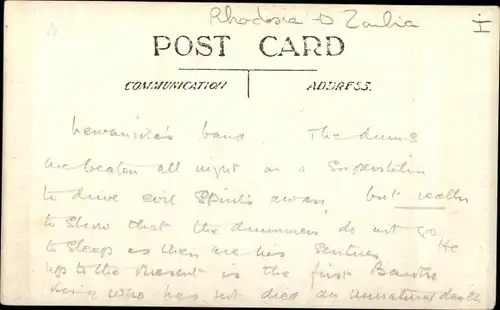 Rhodesia → Zambia
I
POST CARD
COMMUNICATION
ADDRESS.
Lewanika's band The drums
are beaten all night as a Superstition
to drive evil Spirits away, but really
to show that the drummers do not go
to Sleep as they are his Sentries He
up to the Present is the first Bantu
King who has not died an unnatural death